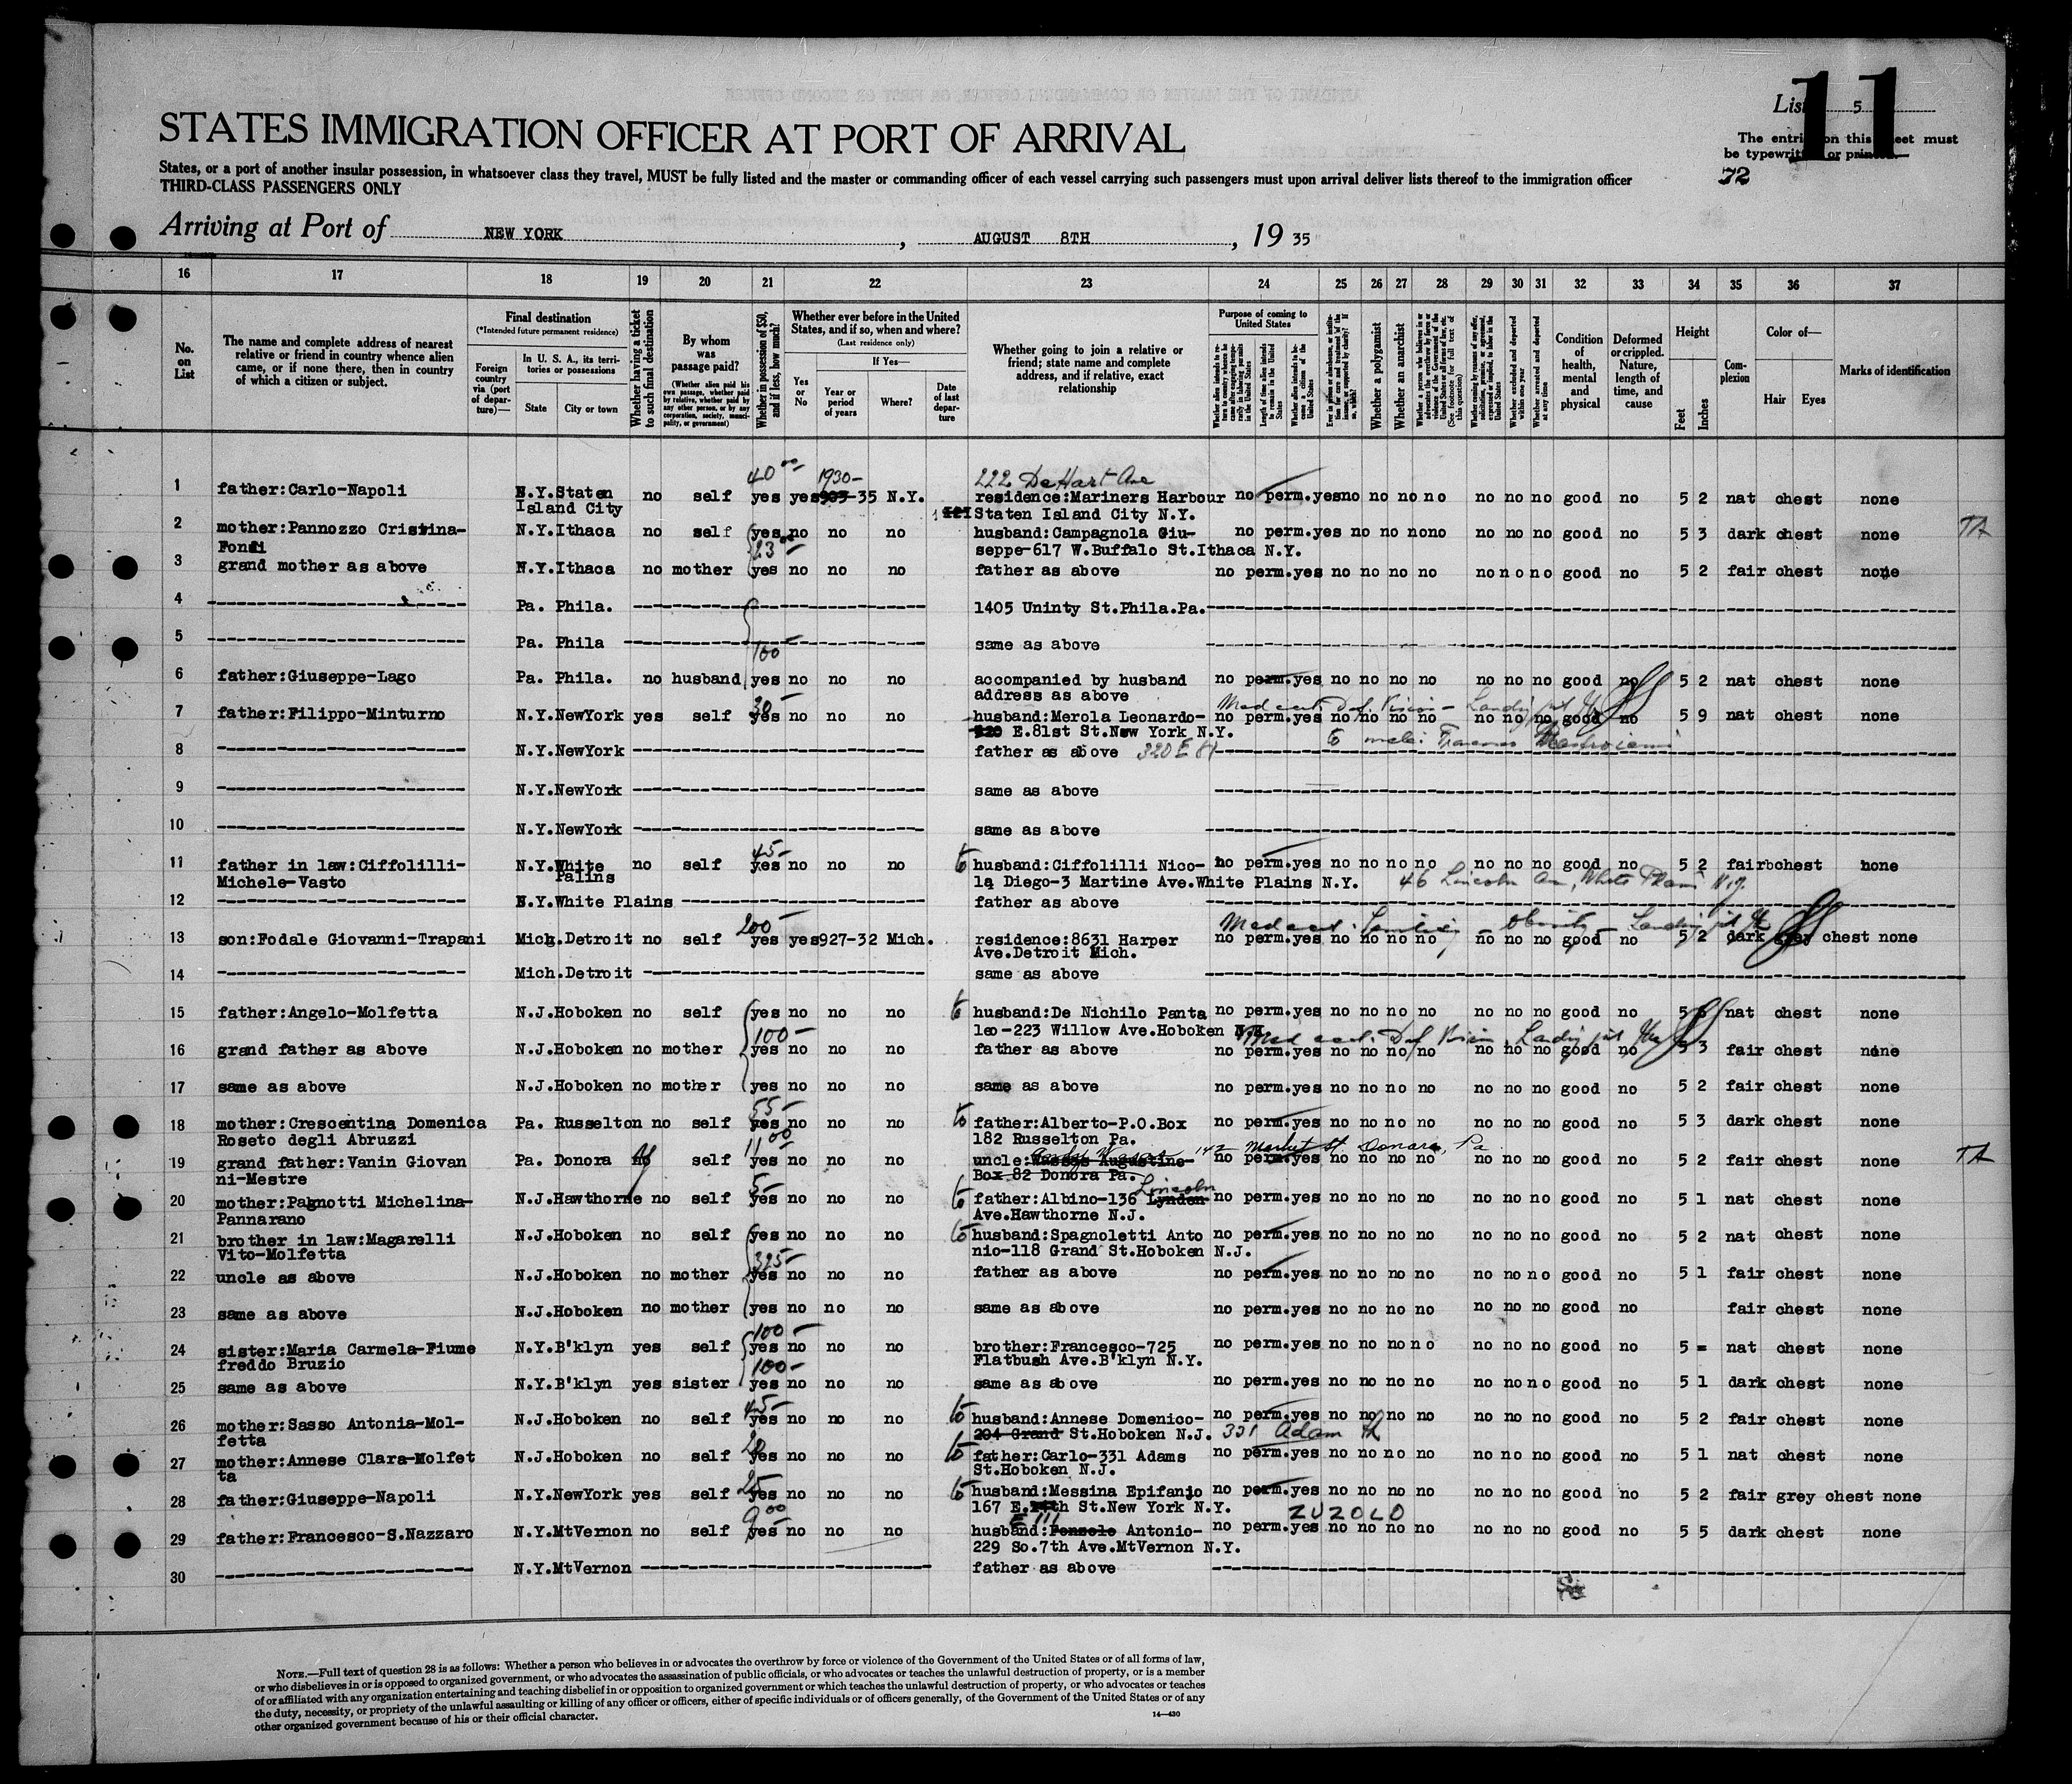 11
List 5
STATES IMMIGRATION OFFICER AT PORT OF ARRIVAL
The entries on this sheet must
be typewritten or printed.
72
States, or a port of another insular possession, in whatsoever class they travel, MUST be fully listed and the master or commanding officer of each vessel carrying such passengers must upon arrival deliver lists thereof to the immigration officer
THIRD-CLASS PASSENGERS ONLY
Arriving at Port of NEW YORK, AUGUST 8TH, 19 35
16 17 18 19 20 21 22 23 24 25 26 27 28 29 30 31 32 33 34 35 36 37
No. on List
The name and complete address of nearest relative or friend in country whence alien came, or if none there, then in country of which a citizen or subject.
Final destination
(*Intended future permanent residence)
Foreign country via (port of departure)—
In U. S. A., its territories or possessions
State City or town
Whether having a ticket to such final destination
By whom was passage paid?
(Whether alien paid his own passage, whether paid by relative, whether paid by any other person, or by any corporation, society, municipality, or government)
Whether in possession of $50, and if less, how much?
Whether ever before in the United States, and if so, when and where?
(Last residence only)
Yes or No
If Yes—
Year or period of years
Where?
Date of last departure
Whether going to join a relative or friend; state name and complete address, and if relative, exact relationship
Purpose of coming to United States
Whether a polygamist
Whether an anarchist
Whether arrested and deported at any time
Condition of health, mental and physical
Deformed or crippled. Nature, length of time, and cause
Height
Feet Inches
Complexion
Color of—
Hair Eyes
Marks of identification
40 00 1930- 222 DeHart Ave
1 father:Carlo-Napoli N.Y.Staten no self yes yes 903-35 N.Y. residence:Mariners Harbour no perm.yes no no no no no no no good no 5 2 nat chest none
Island City Staten Island City N.Y.
2 mother:Pannozzo Cristina- N.Y.Ithaca no self yes no no no husband:Campagnola Giu- no perm.yes no no no no no no no good no 5 3 dark chest none TA
Fondi 23 seppe-617 W.Buffalo St.Ithaca N.Y.
3 grand mother as above N.Y.Ithaca no mother yes no no no father as above no perm.yes no no no no no no no good no 5 2 fair chest none
4 Pa. Phila. 1405 Uninty St.Phila.Pa.
5 Pa. Phila same as above
100
6 father:Giuseppe-Lago Pa. Phila. no husband yes no no no accompanied by husband no perm.yes no no no no no no no good no 5 2 nat chest none
address as above
30
7 father:Filippo-Minturno N.Y.NewYork yes self yes no no no husband:Merola Leonardo- no perm.yes no no no no no no no good no 5 9 nat chest none
320 E.81st St.New York N.Y.
8 N.Y.NewYork father as above 320 E 81
9 N.Y.NewYork same as above
10 N.Y.NewYork same as above
45-
11 father in law:Ciffolilli- N.Y.White no self yes no no no to husband:Ciffolilli Nico- no perm.yes no no no no no no no good no 5 2 fair chest none
Michele-Vasto Palins la Diego-3 Martine Ave.White Plains N.Y. 46 Lincoln Av, White Plains N.Y.
12 N.Y.White Plains father as above
200
13 son:Fodale Giovanni-Trapani Mich.Detroit no self yes yes927-32 Mich. residence:8631 Harper no perm.yes no no no no no no no good no 5 2 dark grey chest none
Ave.Detroit Mich.
14 Mich.Detroit same as above
15 father:Angelo-Molfetta N.J.Hoboken no self yes no no no to husband:De Nichilo Panta no perm.yes no no no no no no no good no 5 nat chest none
100- leo-223 Willow Ave.Hoboken N.J.
16 grand father as above N.J.Hoboken no mother yes no no no father as above no perm.yes no no no no no no no good no 5 3 fair chest none
17 same as above N.J.Hoboken no mother yes no no no same as above no perm.yes no no no no no no no good no 5 2 fair chest none
55-
18 mother:Crescentina Domenica Pa. Russelton no self yes no no no to father:Alberto-P.O.Box no perm.yes no no no no no no no good no 5 3 dark chest none
Roseto degli Abruzzi 182 Russelton Pa.
11 00 142 Market St. Donora, Pa
19 grand father:Vanin Giovan Pa. Donora no self yes no no no uncle: Augustine- no perm.yes no no no no no no no good no 5 2 fair chest none TA
ni-Mestre Box 82 Donora Pa.
5- Lincoln
20 mother:Pagnotti Michelina- N.J.Hawthorne no self yes no no no to father:Albino-136 Lynden no perm.yes no no no no no no no good no 5 1 nat chest none
Pannarano Ave.Hawthorne N.J.
21 brother in law:Magarelli N.J.Hoboken no self yes no no no to husband:Spagnoletti Anto no perm.yes no no no no no no no good no 5 2 nat chest none
Vito-Molfetta 325- nio-118 Grand St.Hoboken N.J.
22 uncle as above N.J.Hoboken no mother yes no no no father as above no perm.yes no no no no no no no good no 5 1 fair chest none
23 same as above N.J.Hoboken no mother yes no no no same as above no perm.yes no no no no no no no good no fair chest none
100-
24 sister:Maria Carmela-Fiume N.Y.B'klyn yes self yes no no no brother:Francesco-725 no perm.yes no no no no no no no good no 5 = nat chest none
freddo Bruzio 100- Flatbush Ave.B'klyn N.Y.
25 same as above N.Y.B'klyn yes sister yes no no no same as above no perm.yes no no no no no no no good no 5 1 dark chest none
45-
26 mother:Sasso Antonia-Mol- N.J.Hoboken no self yes no no no to husband:Annese Domenico- no perm.yes no no no no no no no good no 5 2 fair chest none
fetta 204 Grand St.Hoboken N.J. 331 Adam St
27 mother:Annese Clara-Molfet N.J.Hoboken no self yes no no no to father:Carlo-331 Adams no perm.yes no no no no no no no good no 5 1 nat chest none
ta St.Hoboken N.J.
25
28 father:Giuseppe-Napoli N.Y.NewYork yes self yes no no no to husband:Messina Epifanio no perm.yes no no no no no no no good no 5 2 fair grey chest none
167 E. th St.New York N.Y.
9 00 E 111 ZUZOLO
29 father:Francesco-S.Nazzaro N.Y.MtVernon no self yes no no no husband:Penzolo Antonio- no perm.yes no no no no no no no good no 5 5 dark chest none
229 So.7th Ave.MtVernon N.Y.
30 N.Y.MtVernon father as above
NOTE.—Full text of question 28 is as follows: Whether a person who believes in or advocates the overthrow by force or violence of the Government of the United States or of all forms of law,
or who disbelieves in or is opposed to organized government, or who advocates the assassination of public officials, or who advocates or teaches the unlawful destruction of property, or is a member
of or affiliated with any organization entertaining and teaching disbelief in or opposition to organized government or which teaches the unlawful destruction of property, or who advocates or teaches
the duty, necessity, or propriety of the unlawful assaulting or killing of any officer or officers, either of specific individuals or of officers generally, of the Government of the United States or of any
other organized government because of his or their official character.
14—430